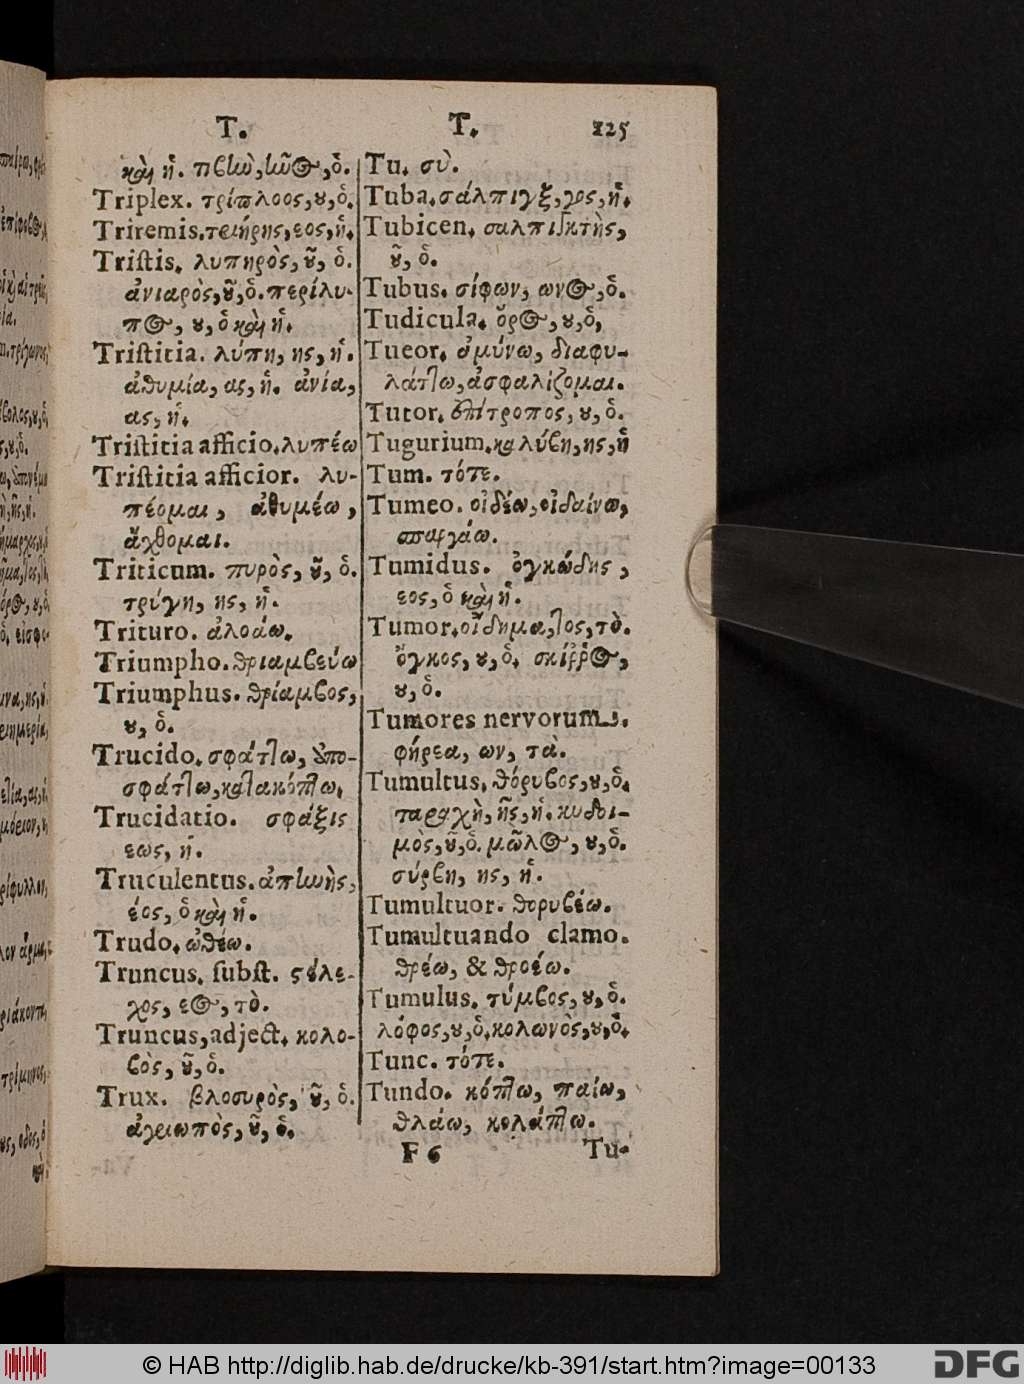 T.
T.
125
καὶ ἡ. πιὼ, ιῶος, ὁ.
Triplex. τρίπλοος, ου, ὁ.
Triremis. τριήρης, εος, ἡ.
Triſtis. λυπηρὸς, οῦ, ὁ.
ἀνιαρὸς, οῦ, ὁ. περίλυ-
πος, ου, ὁ καὶ ἡ.
Triſtitia. λύπη, ης, ἡ.
ἀθυμία, ας, ἡ. ἀνία,
ας, ἡ.
Triſtitia afficio. λυπέω
Triſtitia afficior. λυ-
πέομαι, ἀθυμέω,
ἄχθομαι.
Triticum. πυρὸς, οῦ, ὁ.
τρύγη, ης, ἡ.
Trituro. ἀλοάω.
Triumpho. θριαμβεύω
Triumphus. θρίαμβος,
ου, ὁ.
Trucido. σφάτ7ω, ἀπο-
σφάτ7ω, κατακόπ7ω.
Trucidatio. σφάξις
εως, ἡ.
Truculentus. ἀπηνὴς,
έος, ὁ καὶ ἡ.
Trudo. ὠθέω.
Truncus. ſubſt. στέλε-
χος, εος, τὸ.
Truncus, adject. κολο-
βὸς, οῦ, ὁ.
Trux. βλοσυρὸς, οῦ, ὁ.
ἀγριωπὸς, οῦ, ὁ.
Tu. σὺ.
Tuba. σάλπιγξ, γος, ἡ.
Tubicen. σαλπιγκτὴς,
οῦ, ὁ.
Tubus. σίφων, ωνος, ὁ.
Tudicula. ὄρος, ου, ὁ,
Tueor. ἀμύνω, διαφυ-
λάτ7ω, ἀσφαλίζομαι.
Tutor. ἐπίτροπος, ου, ὁ.
Tugurium. καλύβη, ης, ἡ
Tum. τότε.
Tumeo. οἰδέω, οἰδαίνω,
σπαργάω.
Tumidus. ὀγκώδης,
εος, ὁ καὶ ἡ.
Tumor. οἴδημα, τος, τὸ.
ὄγκος, ου, ὁ. σκίῤῥος,
ου, ὁ.
Tumores nervorum.
φήρεα, ων, τὰ.
Tumultus. θόρυβος, ου, ὁ.
ταραχὴ, ῆς, ἡ. κυδοι-
μὸς, οῦ, ὁ. μῶλος, ου, ὁ.
σύρβη, ης, ἡ.
Tumultuor. θορυβέω.
Tumultuando clamo.
θρέω, & θροέω.
Tumulus. τύμβος, ου, ὁ.
λόφος, ου, ὁ. κολωνὸς, οῦ, ὁ.
Tunc. τότε.
Tundo. κόπ7ω, παίω,
θλάω, κολάπ7ω.
F 6
Tu-
© HAB http://diglib.hab.de/drucke/kb-391/start.htm?image=00133
DFG